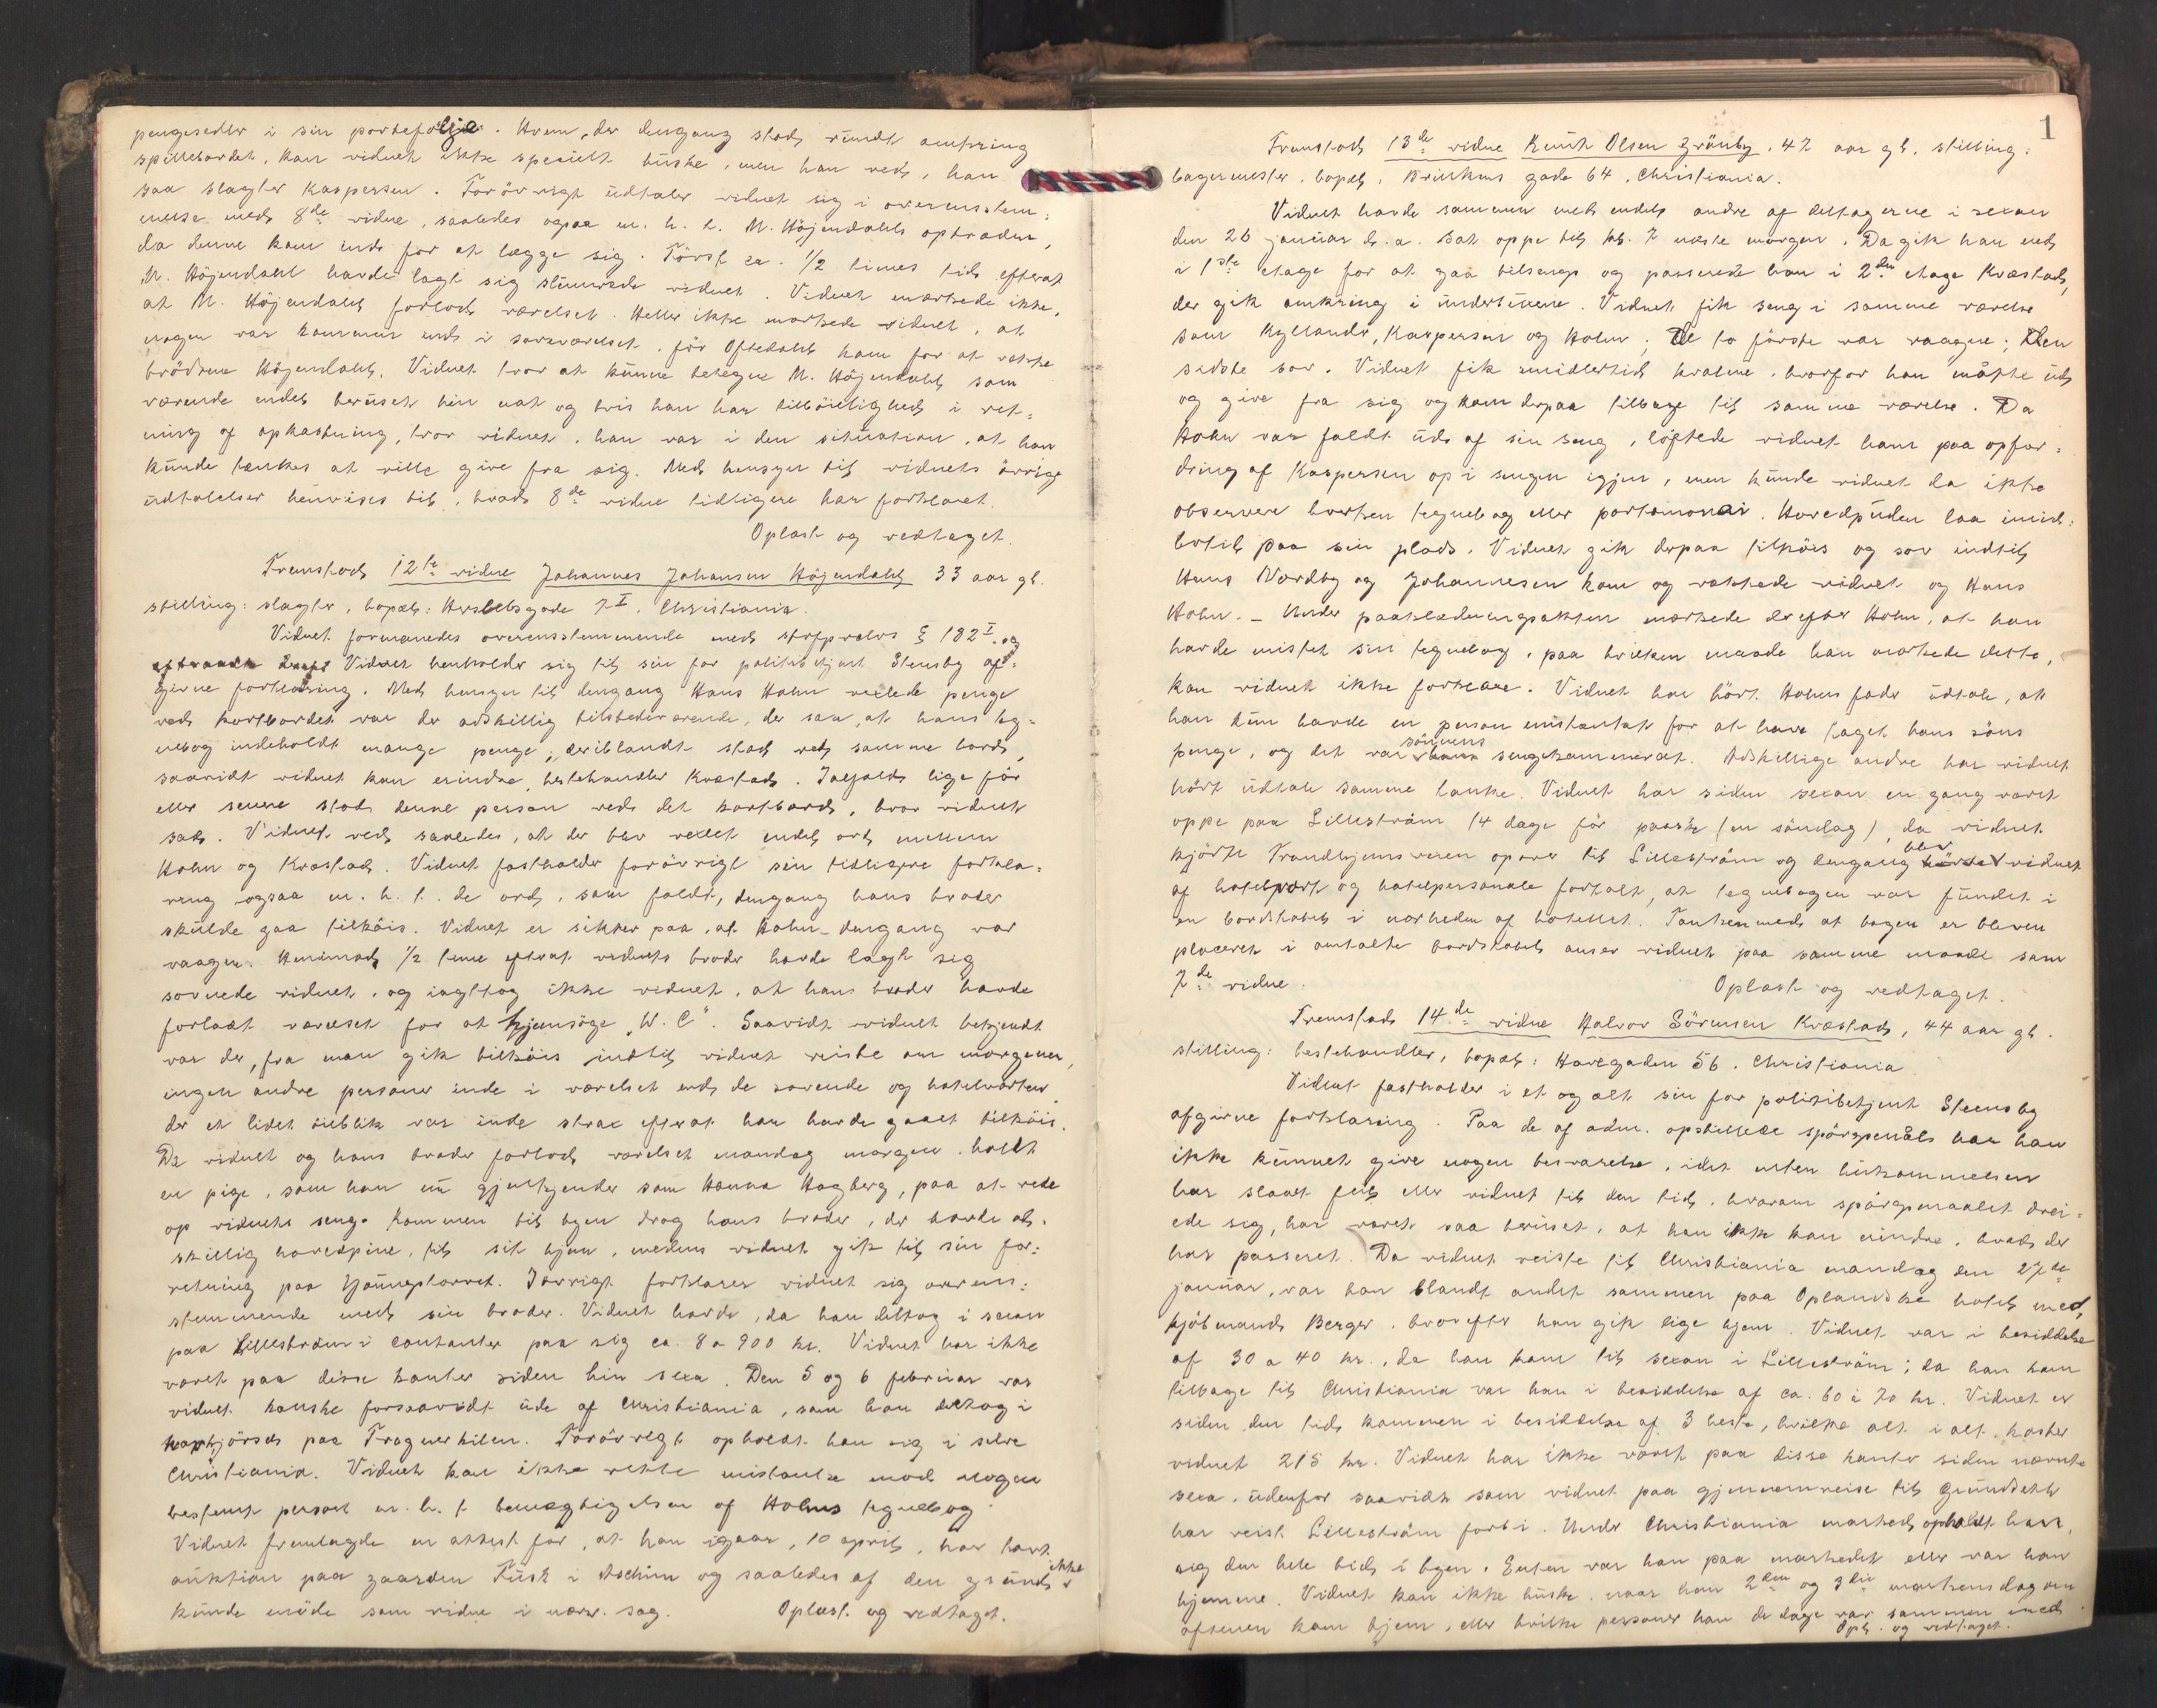 pengesedler i sin portefølje. Hvem, der dengang stod rundt omkring
spillebordet, kan vidnet ikke specielt huske, men han ved, han
saa slagter Kaspersen. Forövrigt udtaler vidnet sig i overensstem=
melse med 8de vidne, saaledes ogsaa m. h. t. M. Höjendahls optræden,
da denne kom ind for at lægge sig. Först ca. 1/2 times tid efterat
M. Höjendahl havde lagt sig slumrede vidnet. Vidnet mærkede ikke,
at M. Höjendahl forlod værelset. Heller ikke mærkede vidnet, at
nogen var kommen ind i soveværelset, för Oftedahl kom for at vække
brödrene Höjendahl. Vidnet tror at kunne betegne M. Höjendahl som
værende endel beruset hin nat og hvis han har tilböielighed i ret=
ning af opkastning, tror vidnet, han var i den situation, at han
kunde tænkes at ville give fra sig. Med hensyn til vidnets övrige
udtalelser henvises til, hvad 8de vidne tidligere har forklaret.
Oplæst og vedtaget.
Fremstod 12te vidne Johannes Johansen Höjendahl 33 aar gl.
stilling: slagter, bopæl: Herslebsgade 7 I. Christiania.
Vidnet formanedes overensstemmende med strfprolov § 182 I. og
Vidnet henholder sig til sin for politibetjent Stensby af=
givne forklaring. Med hensyn til dengang Hans Holm vexlede penge
ved kortbordet var der adskillig tilstedeværende, der saa, at hans teg=
nebog indeholdt mange penge; deriblandt stod ved samme bord,
saavidt vidnet kan erindre, hestehandler Kvæstad. Iafald lige för
eller senere stod denne person ved det kortbord, hvor vidnet
sad. Vidnet ved saaledes, at der blev vexlet endel ord mellem
Holm og Kvæstad. Vidnet fastholder forövrigt sin tidligere forkla=
ring ogsaa m. h. t. de ord, som faldt, dengang hans broder
skulde gaa tilköis. Vidnet er sikker paa, at Holm dengang var
vaagen. Henimod 1/2 time efterat vidnets broder havde lagt sig
sovnede vidnet, og iagttog ikke vidnet, at hans broder havde
forladt værelset for at hjemsöge "W. C". Saavidt vidnet bekjendt
var der, fra man gik tilköis indtil vidnet reiste om morgenen,
ingen andre personer inde i værelset end de sovende og hotelværten,
der et lidet öieblik var inde strax efterat han havde gaaet tilköis.
Da vidnet og hans broder forlod værelset mandag morgen, holdt
en pige, som han nu gjenkjender som Hanna Hagberg, paa at rede
op vidnets seng. Kommen til byen drog hans broder, der havde ad=
skillig hovedpine, til sit hjem, medens vidnet gik til sin for=
retning paa Youngstorvet. Iövrigt forklarer vidnet sig overens=
stemmende med sin broder. Vidnet havde, da han deltog i sexan
paa Lilleström i contanter paa sig ca. 8 a 900 kr. Vidnet har ikke
været paa disse kanter siden hin sexa. Den 5 og 6 februar var
vidnet kanske forsaavidt ude af Christiania, som han deltog i
kapkjörsel paa Frognerkilen. Forövrigt opholdt han sig i selve
Christiania. Vidnet kan ikke rette mistanke mod nogen
bestemt person m. h. t. bemægtigelsen af Holms tegnebog.
Vidnet fremlagde en attest for, at han igaar, 10 april, har havt
auktion paa gaarden Fusk i Aschim og saaledes af den grund ikke
kunde möde som vidne i nærv. sag. Oplæst og vedtaget.
1
Fremstod 13de vidne Knut Olsen Grönby, 47 aar gl. stilling:
bagermester, bopæl, Brinkens gade 64, Christiania.
Vidnet havde sammen med endel andre af deltagerne i sexan
den 26 januar d. a. sat oppe til kl. 7 næste morgen. Da gik han ned
i 1ste etage for at gaa tilsengs og passerede han i 2den etage Kvæstad,
der gik omkring i underbuxene. Vidnet fik seng i samme værelse
som Kyllander, Kaspersen og Holm; De to förste var vaagne; Den
sidste sov. Vidnet fik imidlertid kvalme, hvorfor han måtte ud
og give fra sig og kom derpaa tilbage til samme værelse. Da
Holm var faldt ud af sin seng, löftede vidnet ham paa opfor=
dring af Kaspersen op i sengen igjen, men kunde vidnet da ikke
observere hverken tegnebog eller portemonai. Hovedpuden laa imid=
lertid paa sin plads. Vidnet gik derpaa tilköis og sov indtil
Hans Nordby og Johannesen kom og vækkede vidnet og Hans
Holm. – Under paaklædningsakten mærkede derefter Holm, at han
havde mistet sin tegnebog, paa hvilken maade han mærkede dette,
kan vidnet ikke forklare. Vidnet har hört Holms fader udtale, at
han kun havde en person mistænkt for at have taget hans söns
penge, og det var sönnens sengekammerat. Adskillige andre har vidnet
hört udtale samme tanke. Vidnet har siden sexan en gang været
oppe paa Lilleström 14 dage för paaske (en söndag), da vidnet
kjörte Trondhjemsveien opover til Lilleström og dengang blev vidnet
af hotelvært og hotelpersonale fortalt, at tegnebogen var fundet i
en bordstabel i nærheden af hotellet. Tanken med at bogen er bleven
placeret i omtalte bordstabel anser vidnet paa samme maade som
7de vidne. Oplæst og vedtaget.
Fremstod 14de vidne Halvor Sörensen Kvæstad, 44 aar gl.
stilling: hestehandler, bopæl: Havegaden 56. Christiania.
Vidnet fastholder i et og alt sin for politibetjent Steensby
afgivne forklaring. Paa de af adm. opstillede spörgsmål har han
ikke kunnet give nogen besvarelse, idet enten hukommelsen
har slaaet feil eller vidnet til den tid, hvorom spörgsmaalet drei=
ede sig, har været saa beruset, at han ikke kan erindre, hvad der
har passeret. Da vidnet reiste til Christiania mandag den 27de
januar, var han blandt andet sammen paa Oplandske hotel med
kjöbmand Berger, hvorefter han gik lige hjem. Vidnet var i besiddelse
af 30 a 40 kr., da han kom til sexan i Lilleström; da han kom
tilbage til Christiania var han i besiddelse af ca. 60 à 70 kr. Vidnet er
siden den tid kommen i besiddelse af 3 heste, hvilke alt i alt koster
vidnet 215 kr. Vidnet har ikke været paa disse kanter siden nævnte
sexa, udenfor saavidt som vidnet paa gjennemreise til Grundseth
har reist Lilleström forbi. Under Christiania marked opholdt han
sig den hele tid i byen. Enten var han paa markedet eller var han
hjemme. Vidnet kan ikke huske, naar han 2den og 3die markensdag om
aftenen kom hjem, eller hvilke personer han de dage var sammen med.
Opl. og vedtaget.